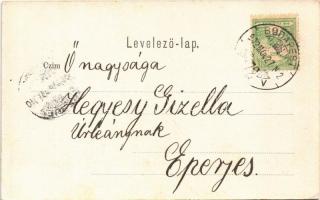 Levelező-lap.
Czím Ő nagysága
Hegyesy Gizella
Úrleánynak
Eperjes.